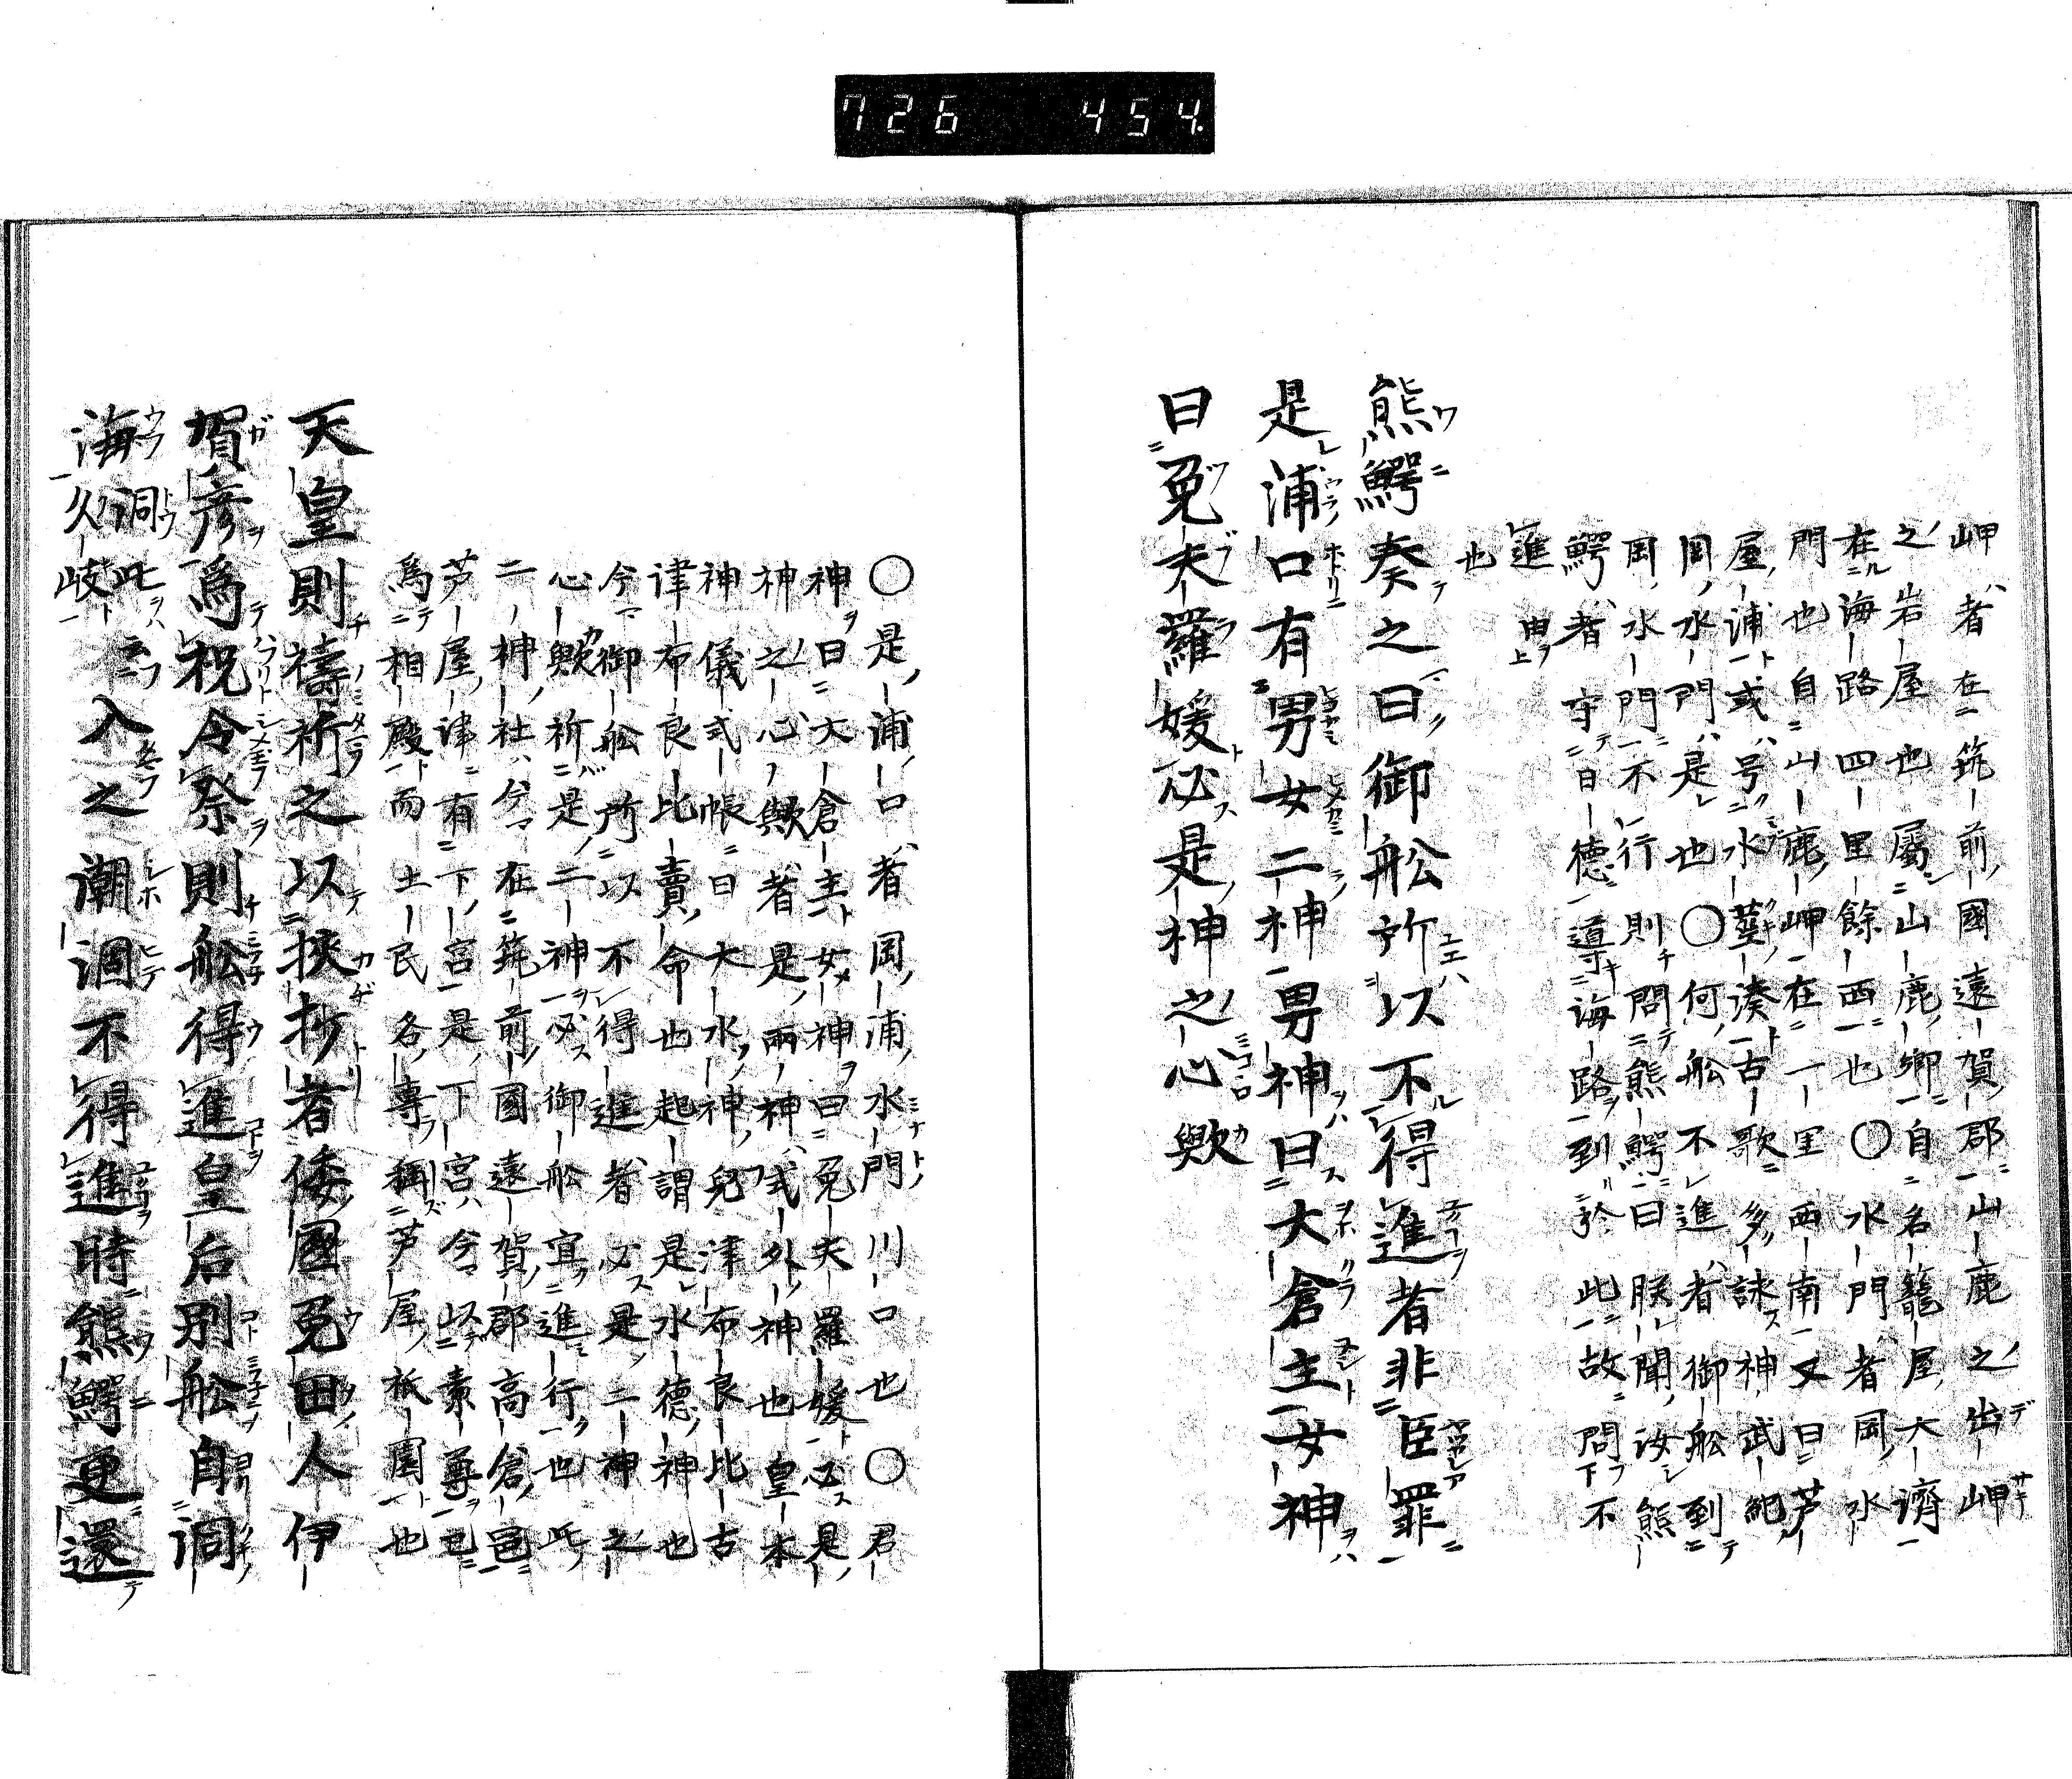 726 454.
岬者在筑前國遠賀郡山鹿之出岬
之岩屋也屬山鹿郷自名籠屋大濟
在海路四里餘西也〇水門者岡水
門也自山鹿岬在一里西南又曰芦
屋浦或号水莖湊古歌多詠神武紀
岡水門是也〇何舩不進者御舩到
岡水門不行則問熊鰐曰朕聞汝熊
鰐者守日德導海路到於此故問不
進由
也
熊鰐奏之曰御舩所以不得進者非臣罪
是浦口有男女二神男神曰大倉主女神
曰菟夫羅媛必是神之心歟
〇是浦口者岡浦水門川口也〇君
神曰大倉主女神曰菟夫羅媛必是
神之心歟者是兩神式外神也皇本
神儀式帳曰大水神兒津布良比古
津布良比賣命也起謂是水德神也
今御舩所以不得進者必是二神之
心歟祈是二神必御舩宜進行也此
二神社今在筑前國遠賀郡高倉邑
芦屋津有下宮是下宮今以素尊已
爲相殿而土民各專稱芦屋祇園也
天皇則禱祈之以挾抄者倭國菟田人伊
賀彦爲祝令祭則舩得進皇后別舩自洞
海洞此云久岐入之潮涸不得進時熊鰐更還